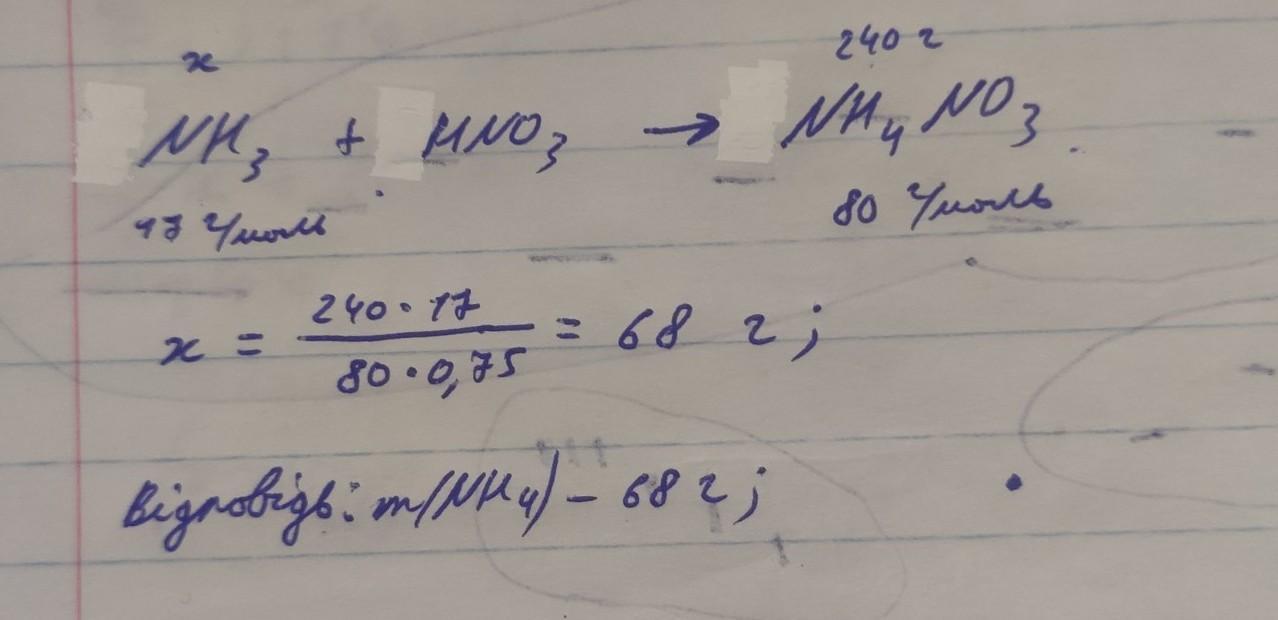 x 240 г
NH₃ + HNO₃ → NH₄NO₃
17 г/моль 80 г/моль
x = (240 · 17)/(80 · 0,75) = 68 г;
Відповідь: m(NH₄) – 68 г;